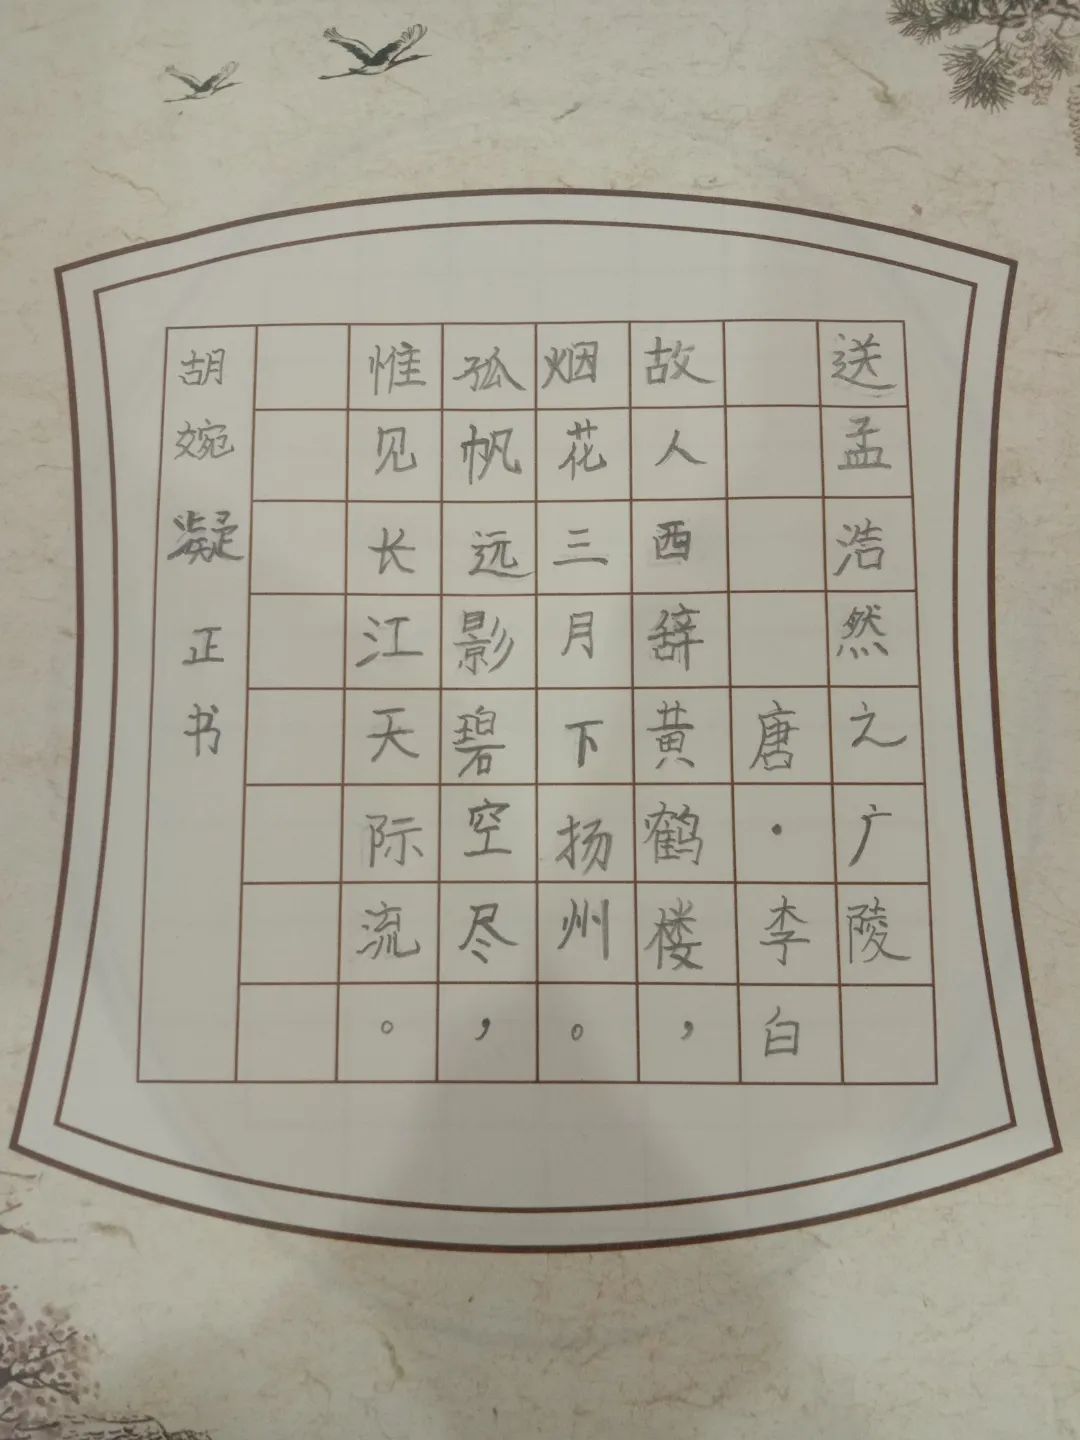 送孟浩然之广陵
唐·李白
故人西辞黄鹤楼，
烟花三月下扬州。
孤帆远影碧空尽，
惟见长江天际流。
胡婉凝正书